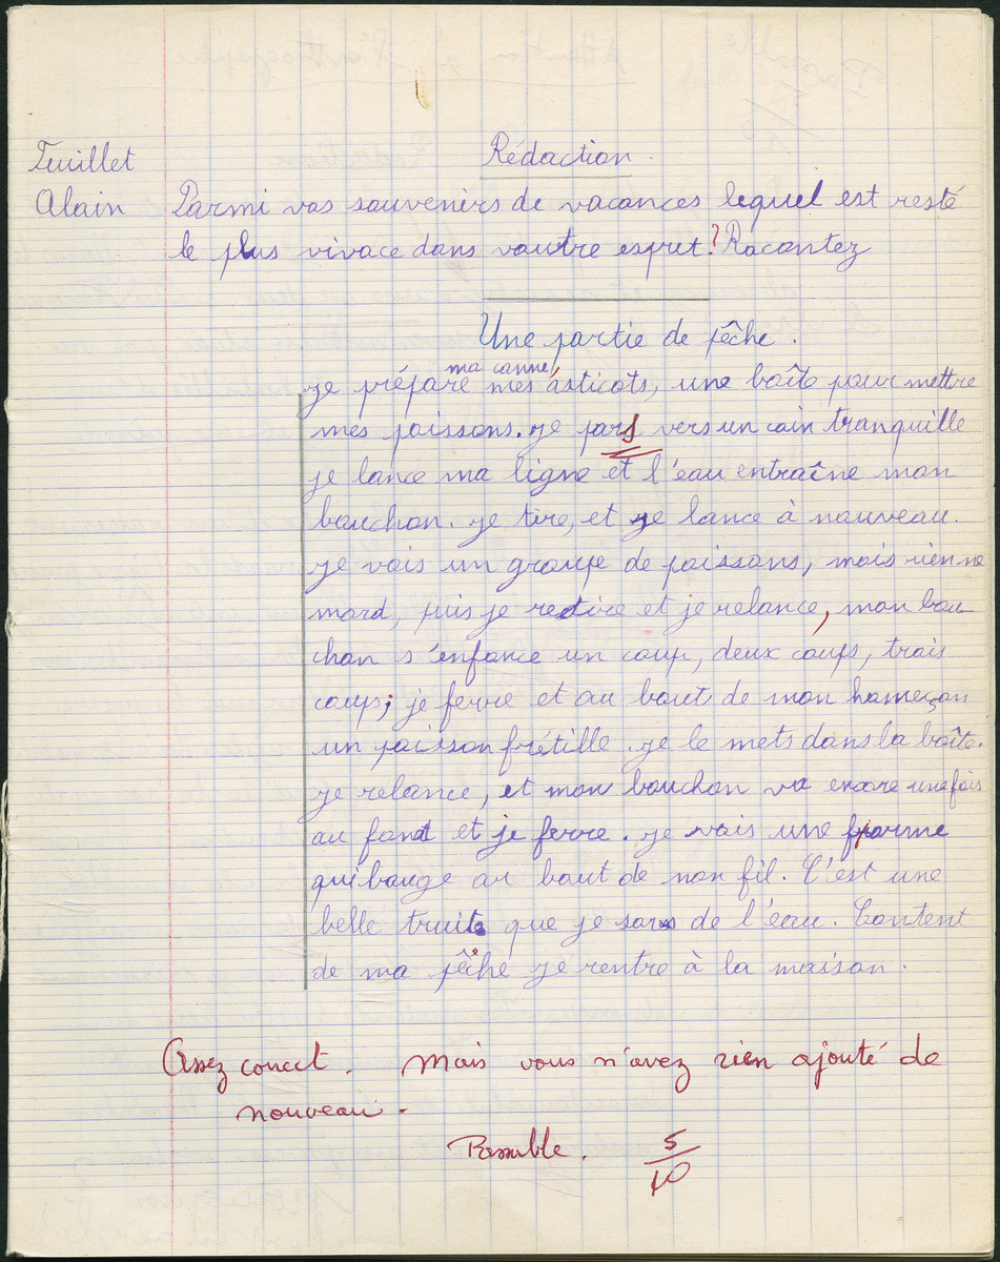 Feuillet
Rédaction.
Alain
Parmi vos souvenirs de vacances lequel est resté
le plus vivace dans voutre espret? Racontez
Une partie de pêche.
ma canne,
je prépare mes asticots, une boîte pour mettre
mes poissons. je pars vers un coin tranquille
je lance ma ligne et l'eau entraîne mon
bouchon. je tire, et je lance à nouveau.
je vois un groupe de poissons, mais rien ne
mord, puis je retire et je relance, mon bou
chon s'enfonce un coup, deux coups, trois
coups; je ferre et au bout de mon hameçon
un poisson frétille. je le mets dans la boîte.
je relance, et mon bouchon va encore une fois
au fond et je ferre. je vois une forme
qui bouge au bout de mon fil. C'est une
belle truite que je sors de l'eau. Content
de ma pêche je rentre à la maison.
Assez correct. Mais vous n'avez rien ajouté de
nouveau.
Passable. 5/10